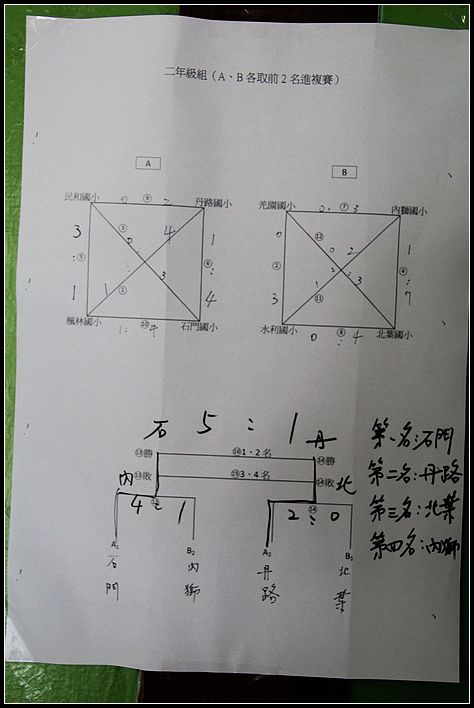 二年級組（A、B 各取前 2 名進複賽）
A
B
民和國小 ⑨ 丹路國小
羌園國小 0 : 3 ⑦ 內獅國小
3 : 1 ⑤
1 : 4 ⑥
0 : 3 ③
1 4 ①
0 3 ②
1 : 7 ④
0 : 3 ⑫
1 2 ⑪
楓林國小 1 : 4 ⑩ 石門國小
水利國小 0 : 4 ⑧ 北葉國小
石 5 : 1 丹
⑬勝 ⑯1、2 名 ⑭勝
⑬敗 ⑮3、4 名 ⑭敗
內 北
4 : 1 ⑬
2 : 0 ⑭
A1 B2 A2 B1
石門 內獅 丹路 北葉
第一名:石門
第二名:丹路
第三名:北葉
第四名:內獅